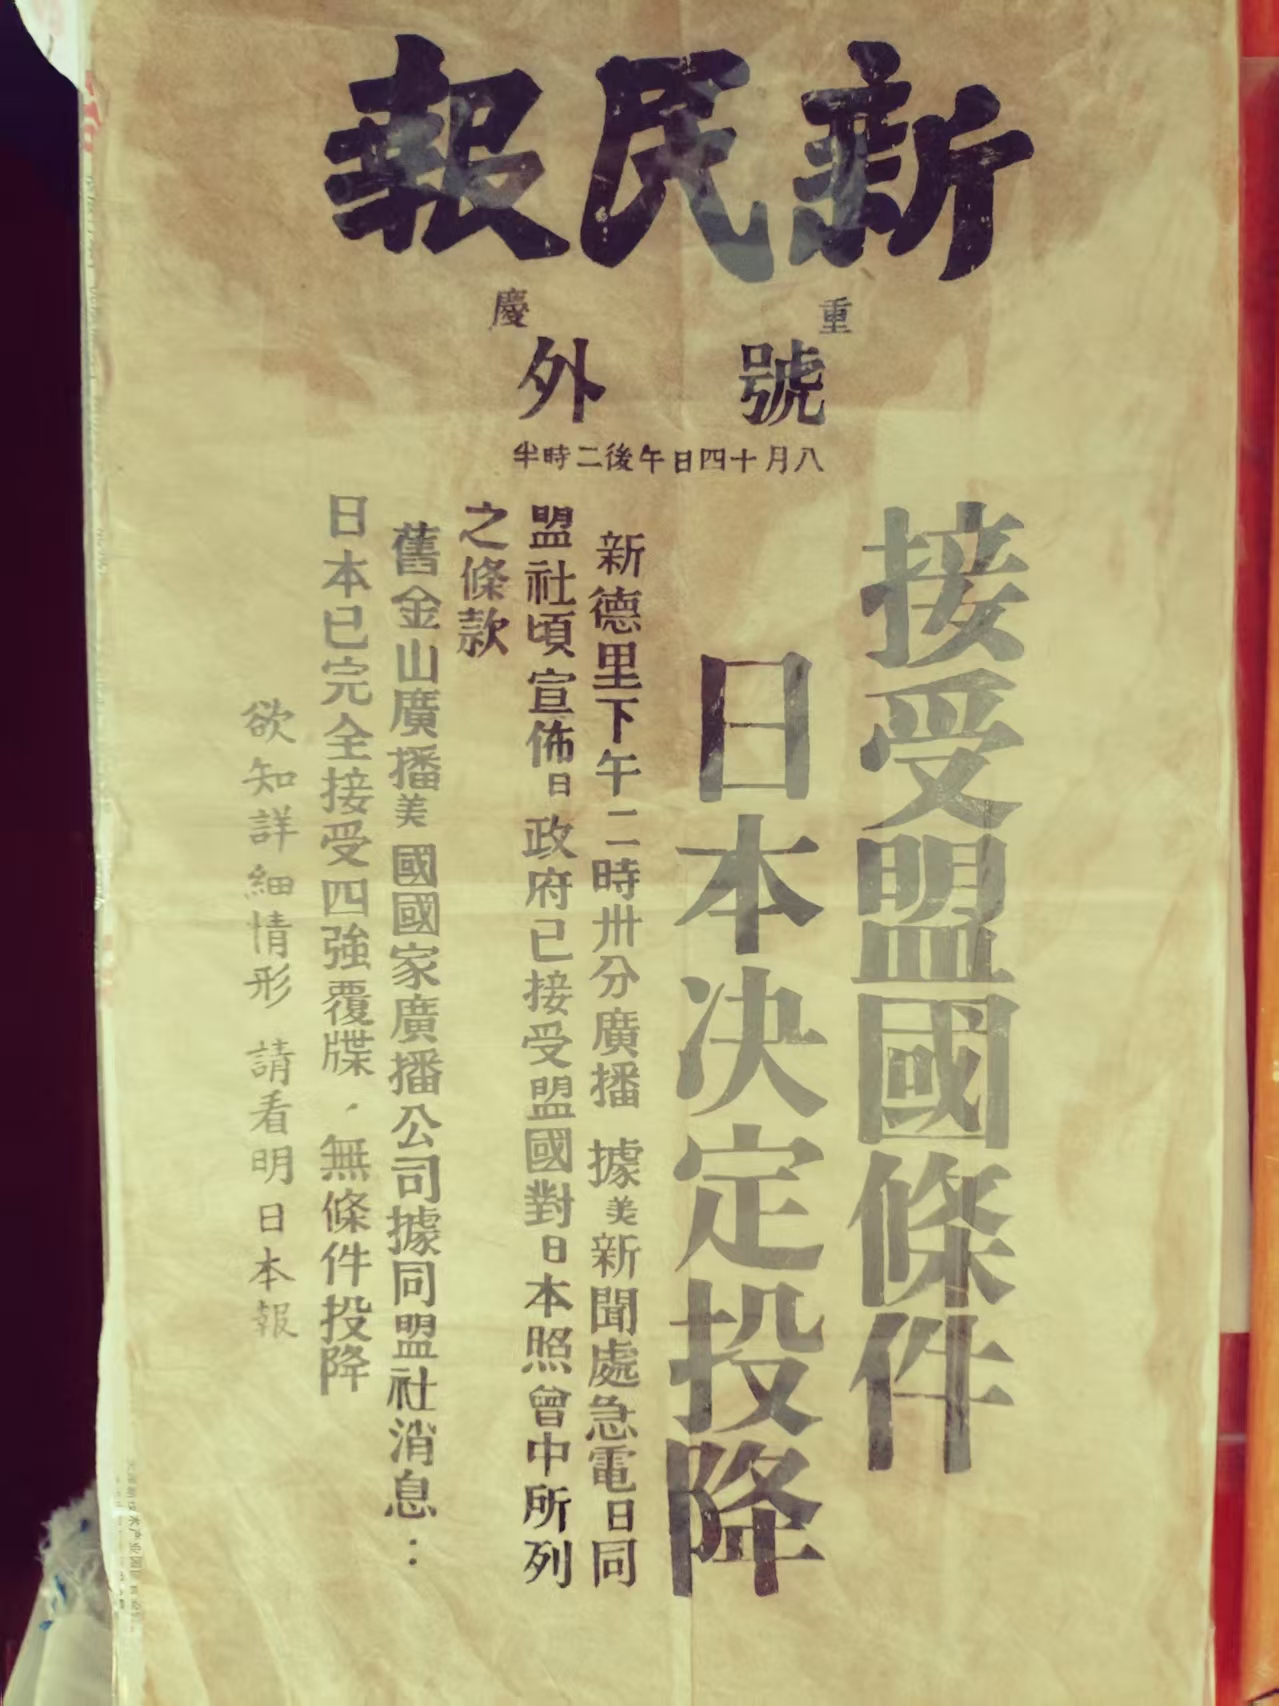 新民報
重慶
號外
八月十四日午後二時半
接受盟國條件
日本决定投降
新德里下午二時卅分廣播 據美新聞處急電日同
盟社頃宣佈日政府已接受盟國對日本照曾中所列
之條款
舊金山廣播美國國家廣播公司據同盟社消息：
日本已完全接受四強覆牒，無條件投降
欲知詳細情形 請看明日本報